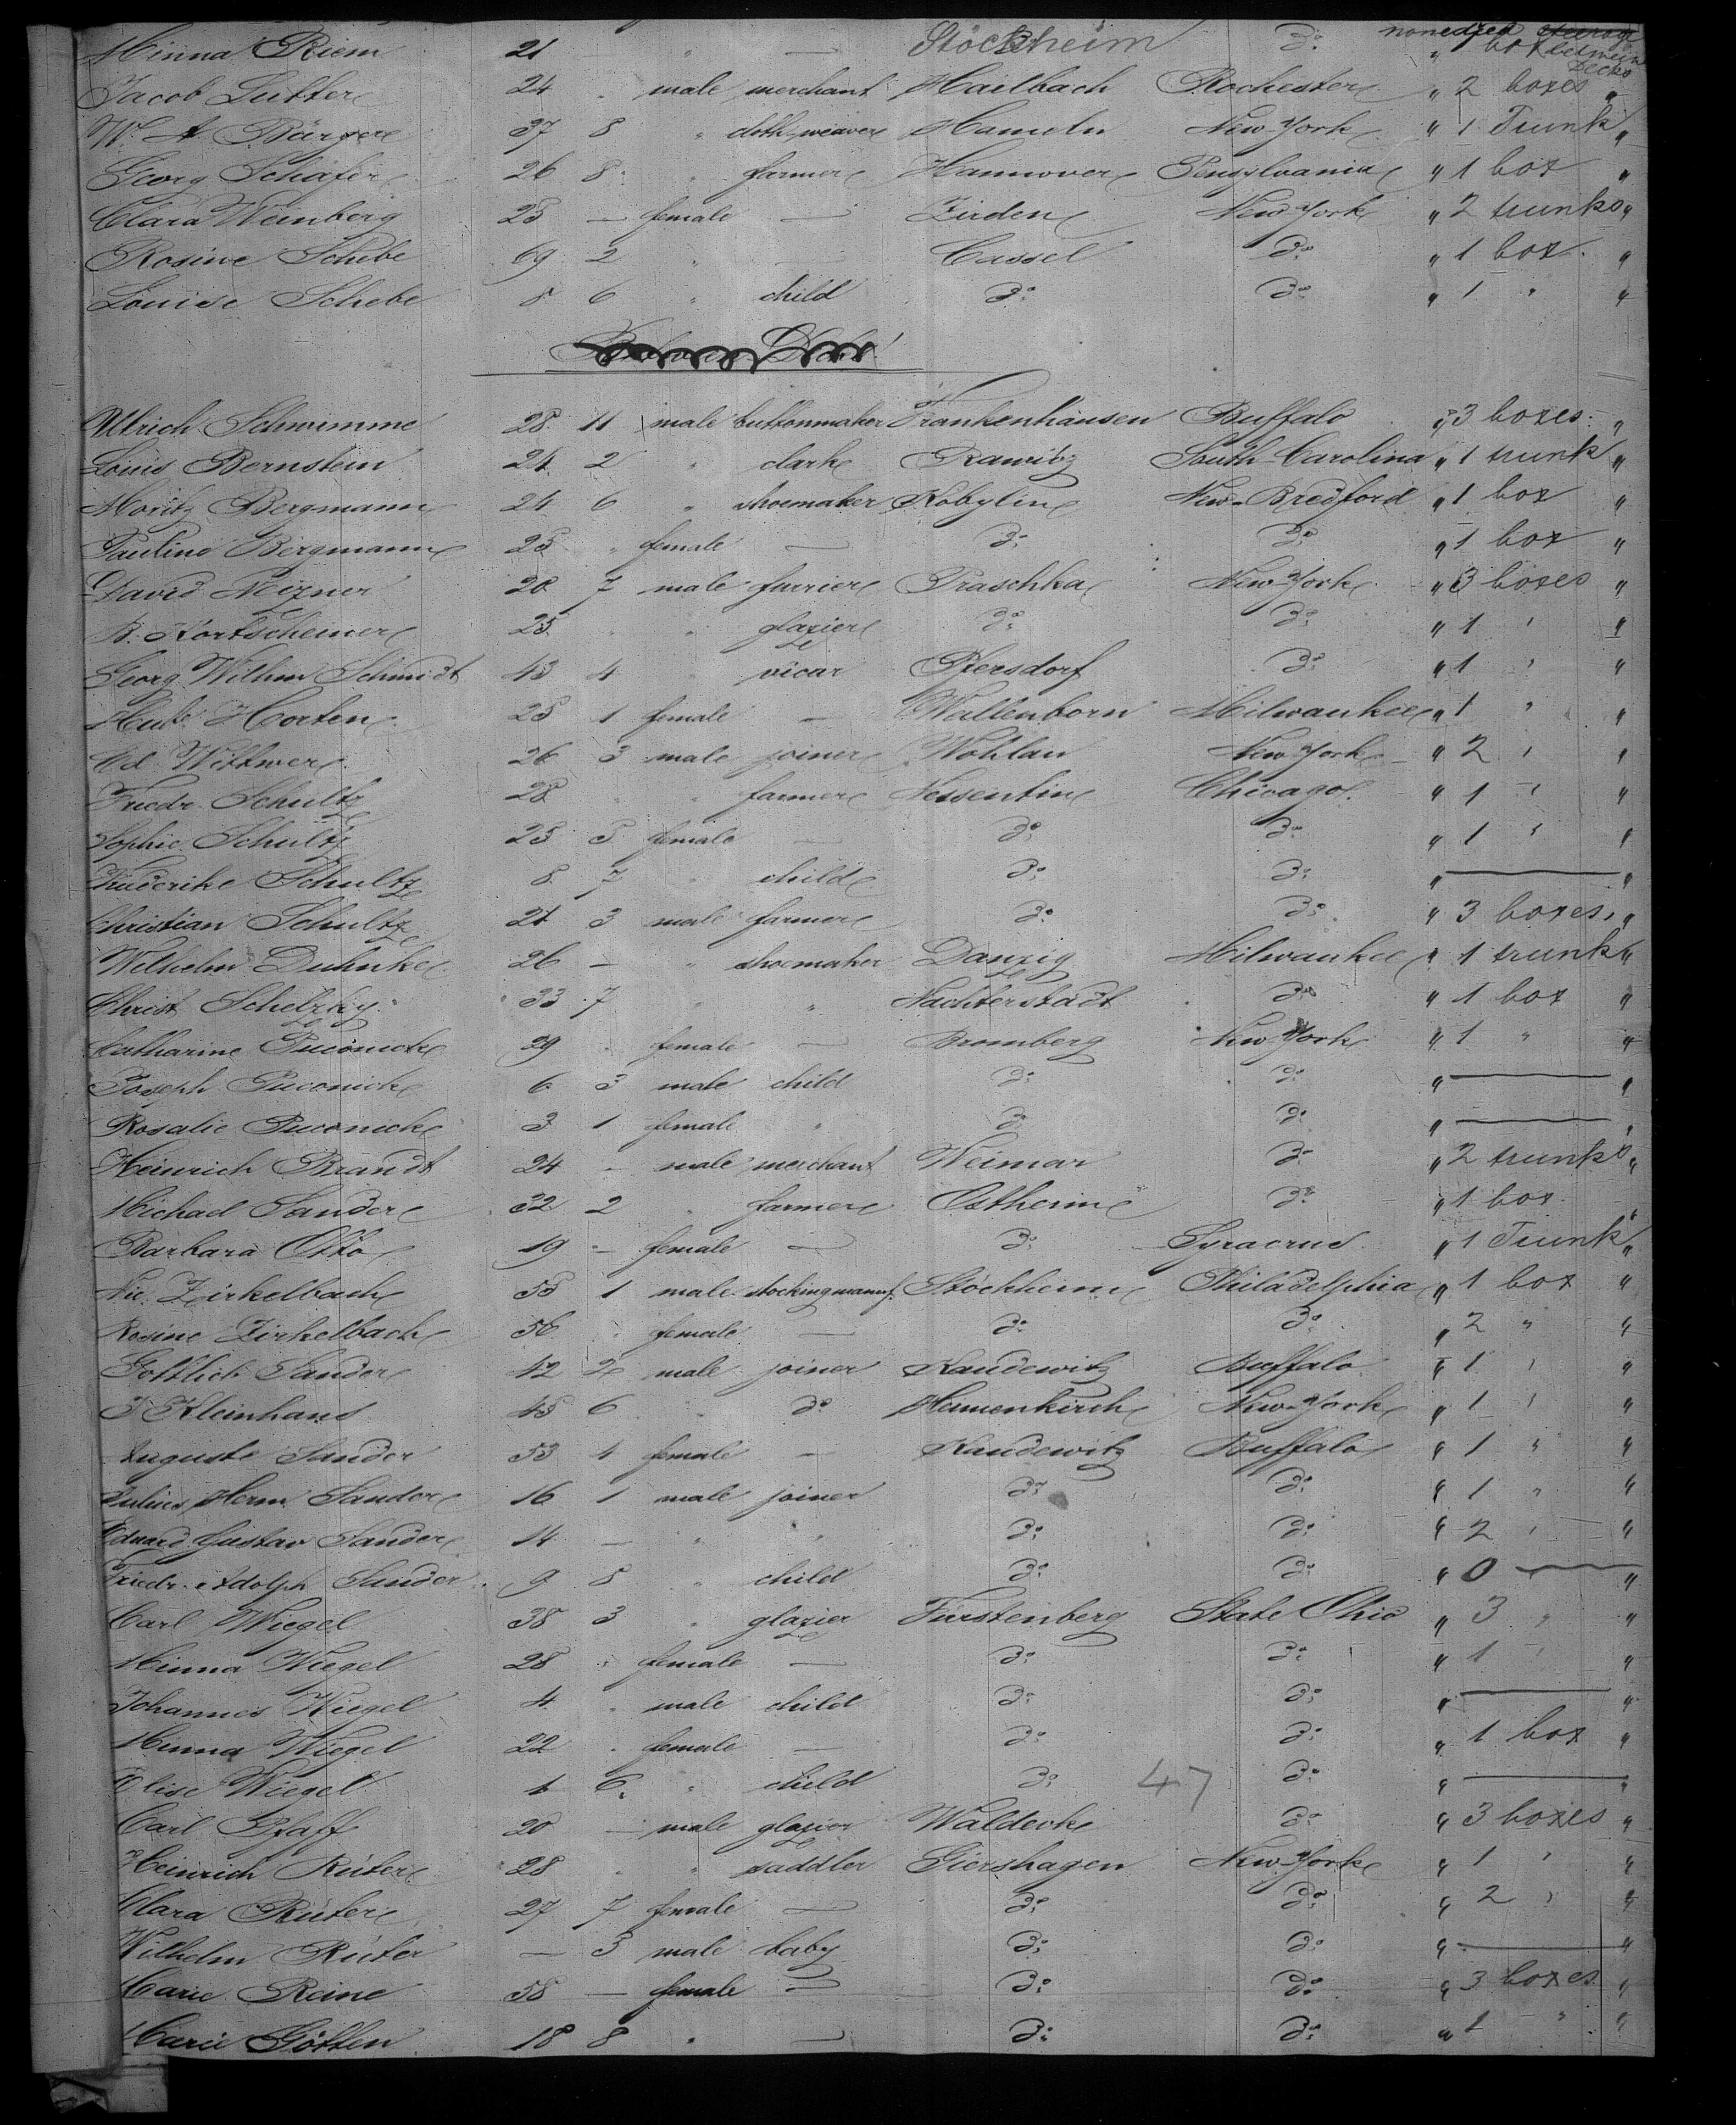 Minna Riem 21 " — Stöckheim do none died steerage
Jacob Sutter 24 " male merchant Hailbach Rochester " 2 boxes "
Wm A Bürger 37 8 " cloth weaver Hameln New-York " 1 Trunk "
Georg Schäfer 26 8 " farmer Hannover Pensylvania " 1 box "
Clara Weinberg 25 — female — Zirden New York " 2 trunks "
Rosine Schebe 69 2 " — Cassel do " 1 box "
Louise Schebe 8 6 " child do do " 1 " "
Ullrich Schwimme 28 11 male buttonmaker Frankenhausen Buffalo " 3 boxes "
Louis Bernstein 24 2 " clark Rawitz South-Carolina " 1 trunk "
Moritz Bergmann 24 6 " shoemaker Kobylin New-Bredford " 1 box "
Pauline Bergmann 25 " female — do do " 1 box "
David Meizner 20 7 male furrier Praschka New-York " 3 boxes "
B. Kortscheiner 25 " " glazier do do " 1 " "
Georg Wilhm Schmidt 43 4 " vicar Piersdorf do " 1 " "
Horten 25 1 female — Wallenborn Milwaukee " 1 " "
Ed. Wittwer 26 3 male joiner Wohlau New York " 2 " "
Friedr. Schultz 28 " " farmer Nessentin Chicago " 1 " "
Sophie Schultz 25 5 female — do do " 1 " "
Friederike Schultz 8 7 " child do do " — "
Christian Schultz 21 3 male farmer do do " 3 boxes "
Wilhelm Duhnke 26 — " shoemaker Danzig Milwaukee " 1 trunk "
Christ. Schelzky 33 7 " " Nachterstadt do " 1 box "
Catharine Puconick 29 " female — Bromberg New York " 1 " "
Joseph Puconick 6 3 male child do do " — "
Rosalie Puconick 3 1 female " do do " — "
Heinrich Brandt 24 — male merchant Weimar do " 2 trunks "
Michael Sander 32 2 " farmer Ostheim do " 1 box "
Barbara Otto 19 — female — do Syracrus " 1 Trunk "
Nic. Zirkelbach 55 1 male stockingmanuf. Stöckheim Philadelphia " 1 box "
Rosine Zirkelbach 56 " female — do do " 2 " "
Gottlieb Sander 42 2 male joiner Kandewitz Buffalo " 1 " "
J Kleinhans 45 6 " do Hamenkirch New-York " 1 " "
Auguste Sander 53 4 female — Kandewitz Buffalo " 1 " "
Julius Herm. Sander 16 1 male joiner do do " 1 " "
Eduard Gustav Sander 14 — " " do do " 2 " "
Friedr. Adolph Sander 9 8 " child do do " 0 — "
Carl Wiegel 38 3 " glazier Fürstenberg State Ohio " 3 " "
Minna Wiegel 28 " female — do do " 1 " "
Johannes Wiegel 4 " male child do do " — "
Minna Wiegel 22 " female — do do " 1 box "
Elise Wiegel 1 6 " child do 47 do " — "
Carl Pfaff 20 — male glazier Waldeck do " 3 boxes "
Heinrich Rüter 28 " " saddler Giershagen New-York " 1 " "
Clara Rüter 27 7 female — do do " 2 " "
Wilhelm Rüter — 3 male baby do do " — "
Marie Reine 58 — female — do do " 3 boxes "
Marie Götten 18 8 " — do do " 1 " "